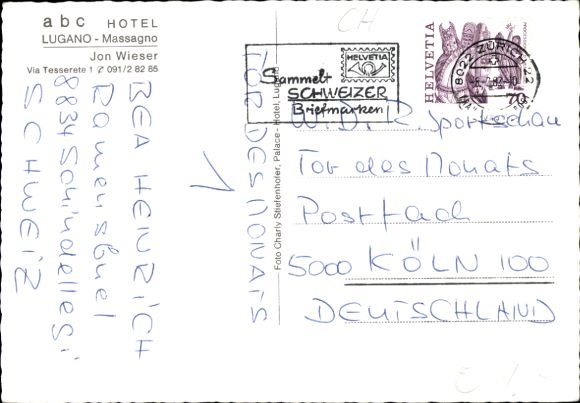 abc HOTEL
LUGANO - Massagno
Jon Wieser
Via Tesserete 1 ✆ 091/2 82 85
BEA HEINRICH
8834 Schindellegi
SCHWEIZ
1
TOR DES MONATS
Foto Charly Stiefenhofer, Palace - Hotel, Lugano
CH
HELVETIA
Sammelt
SCHWEIZER
Briefmarken
HELVETIA
70
8022 ZÜRICH 22
W.D.R. Sportschau
Tor des Monats
Postfach
5000 KÖLN 100
DEUTSCHLAND